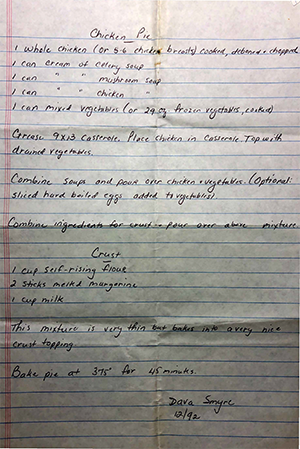 Chicken Pie
1 whole chicken (or 5-6 chicken breasts) cooked, deboned & chopped
1 can cream of celery soup
1 can " " mushroom soup
1 can " " chicken "
1 can mixed vegetables (or 29 oz frozen vegetables, cooked)
Grease 9x13 casserole. Place chicken in casserole. Top with
drained vegetables.
Combine soups and pour over chicken & vegetables. (Optional:
sliced hard boiled eggs added to vegetables).
Combine ingredients for crust & pour over above mixture
Crust
1 cup self-rising flour
2 sticks melted margarine
1 cup milk
This mixture is very thin but bakes into a very nice
crust topping.
Bake pie at 375° for 45 minutes.
Dava Smyre
12/92